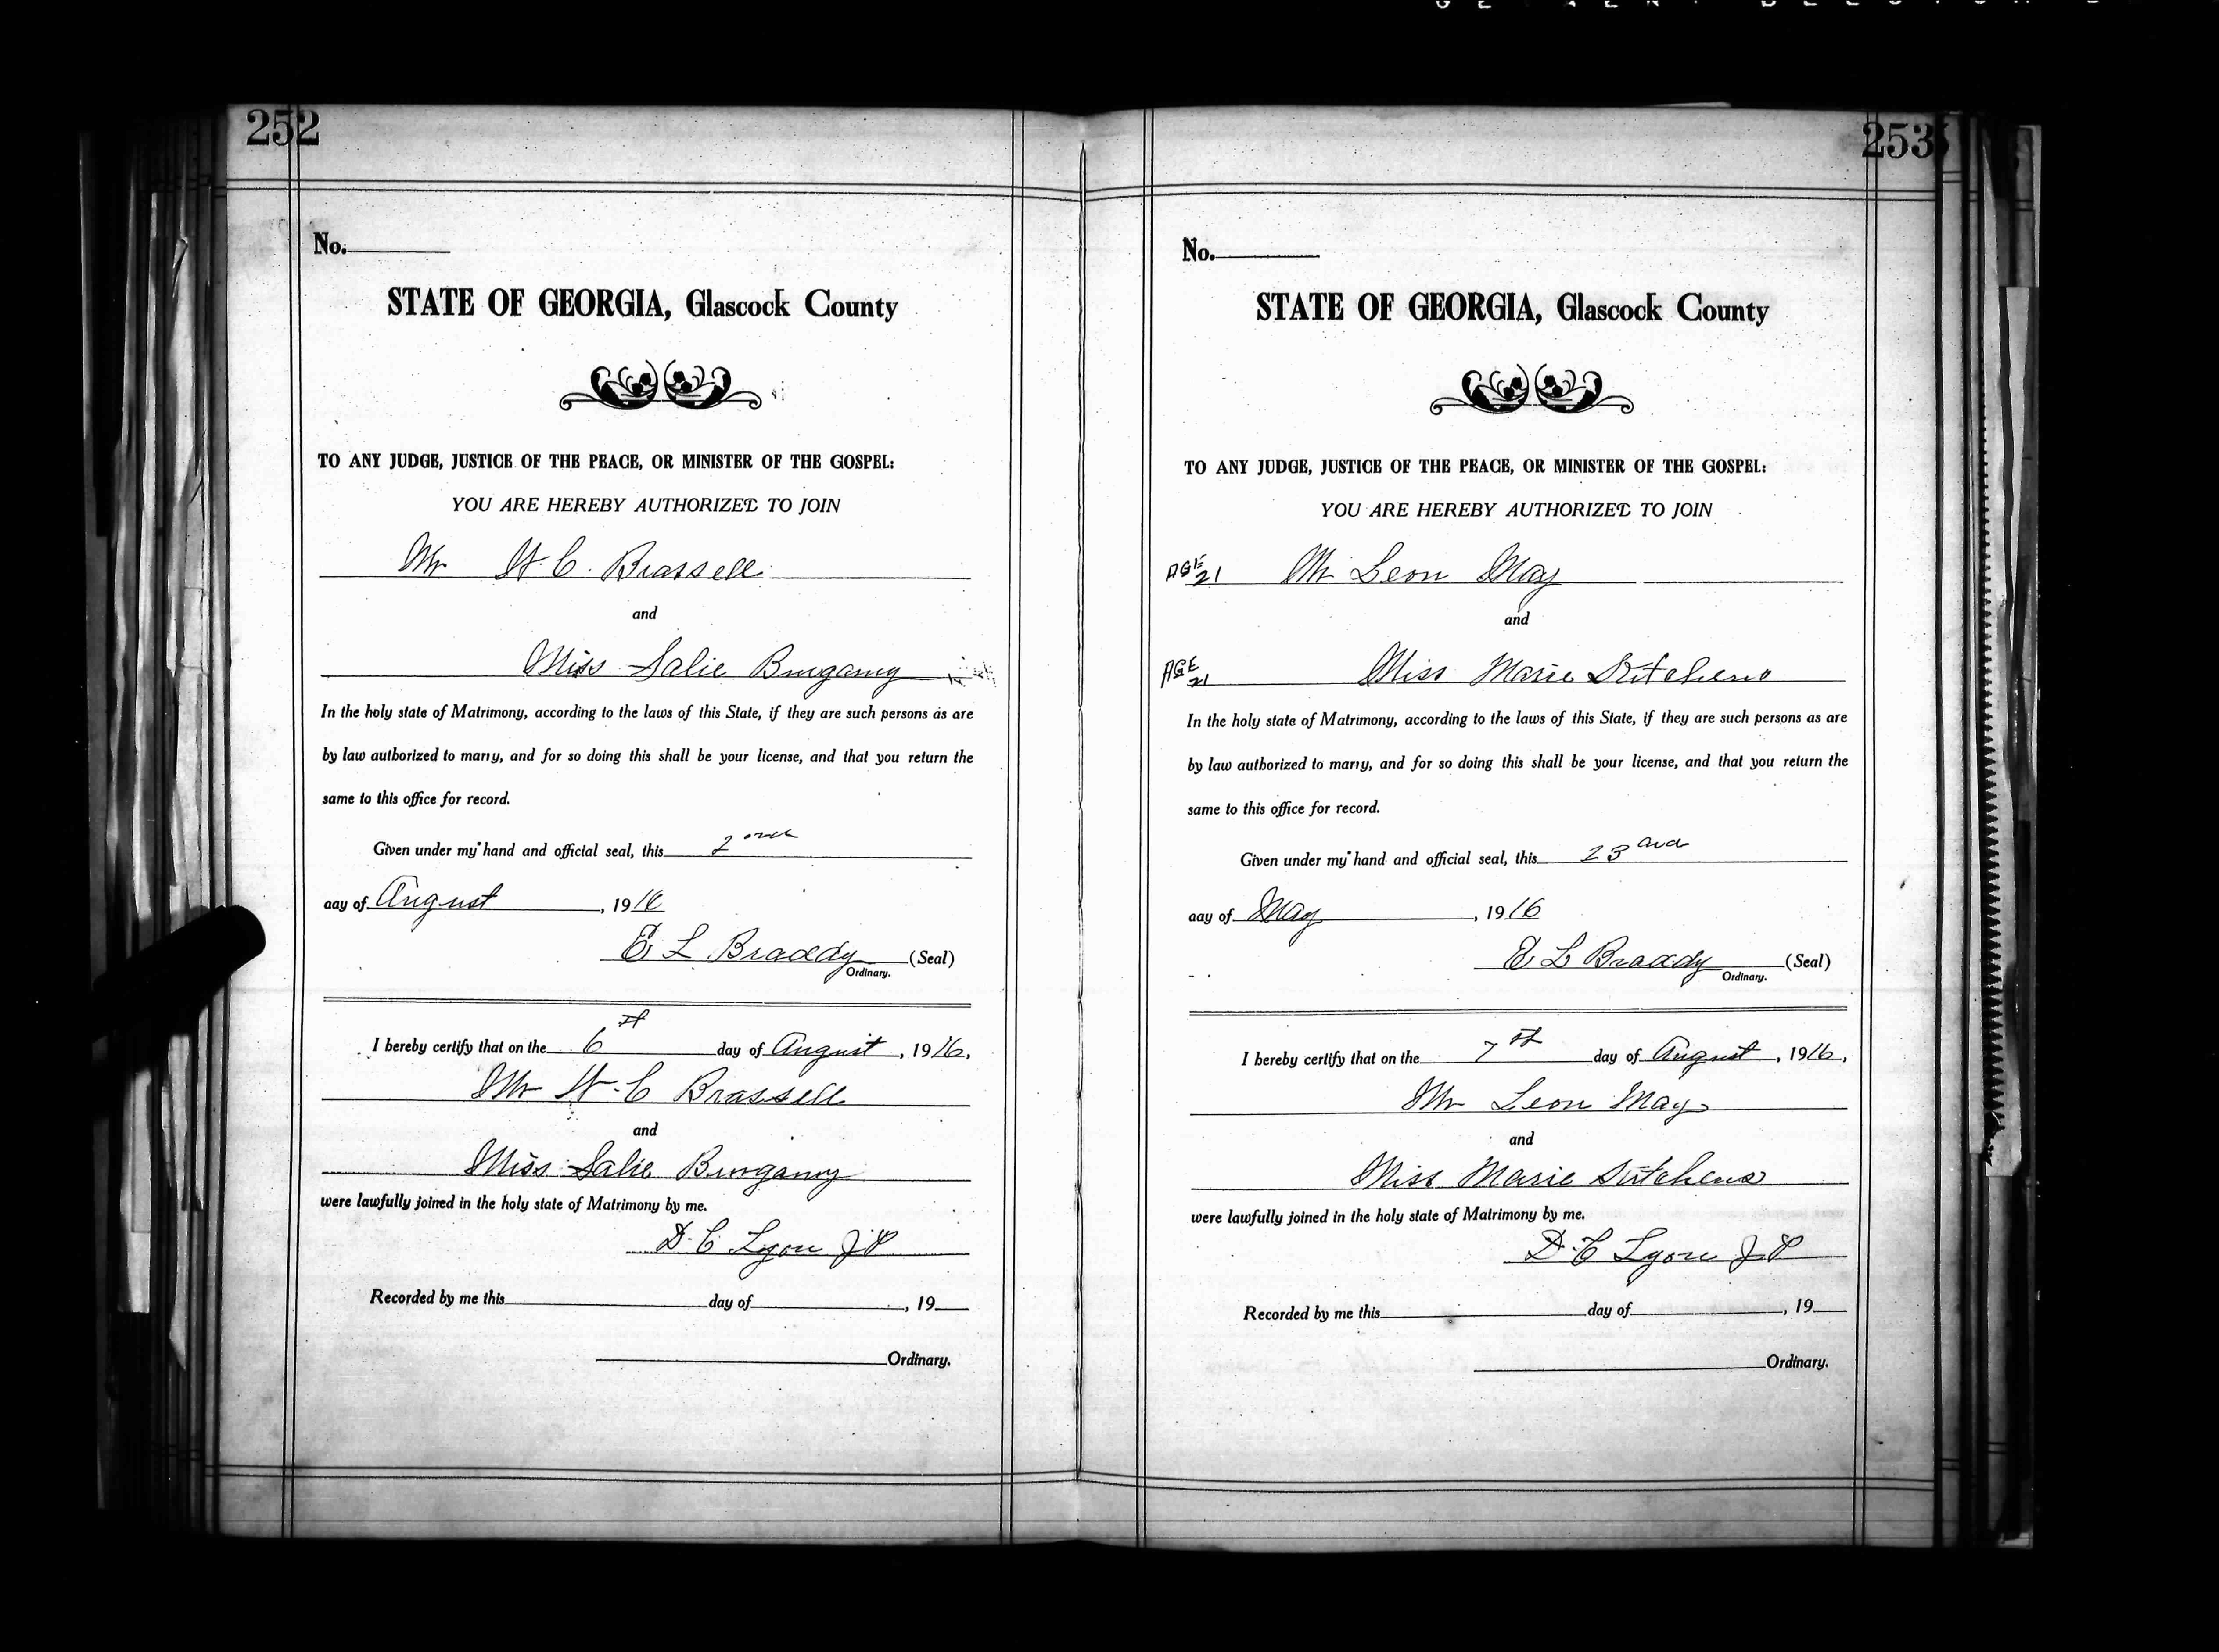 252
No.
STATE OF GEORGIA, Glascock County
TO ANY JUDGE, JUSTICE OF THE PEACE, OR MINISTER OF THE GOSPEL:
YOU ARE HEREBY AUTHORIZED TO JOIN
Mr C. Brassell
and
Miss Salie Burgamy
In the holy state of Matrimony, according to the laws of this State, if they are such persons as are
by law authorized to marry, and for so doing this shall be your license, and that you return the
same to this office for record.
Given under my hand and official seal, this 2ond
day of August, 1916
E L Braddy (Seal)
Ordinary.
I hereby certify that on the 6th day of August, 1916,
Mr C Brassell
and
Miss Salie Burgamy
were lawfully joined in the holy state of Matrimony by me.
D. C Lyon JP
Recorded by me this day of , 19
Ordinary.
253
No.
STATE OF GEORGIA, Glascock County
TO ANY JUDGE, JUSTICE OF THE PEACE, OR MINISTER OF THE GOSPEL:
YOU ARE HEREBY AUTHORIZED TO JOIN
AGE 21 Mr Leon May
and
AGE 21 Miss Marie
In the holy state of Matrimony, according to the laws of this State, if they are such persons as are
by law authorized to marry, and for so doing this shall be your license, and that you return the
same to this office for record.
Given under my hand and official seal, this 23
day of May, 1916
E L Braddy (Seal)
Ordinary.
I hereby certify that on the 7th day of August, 1916,
Mr Leon May
and
Miss Marie
were lawfully joined in the holy state of Matrimony by me.
D. C Lyon JP
Recorded by me this day of , 19
Ordinary.